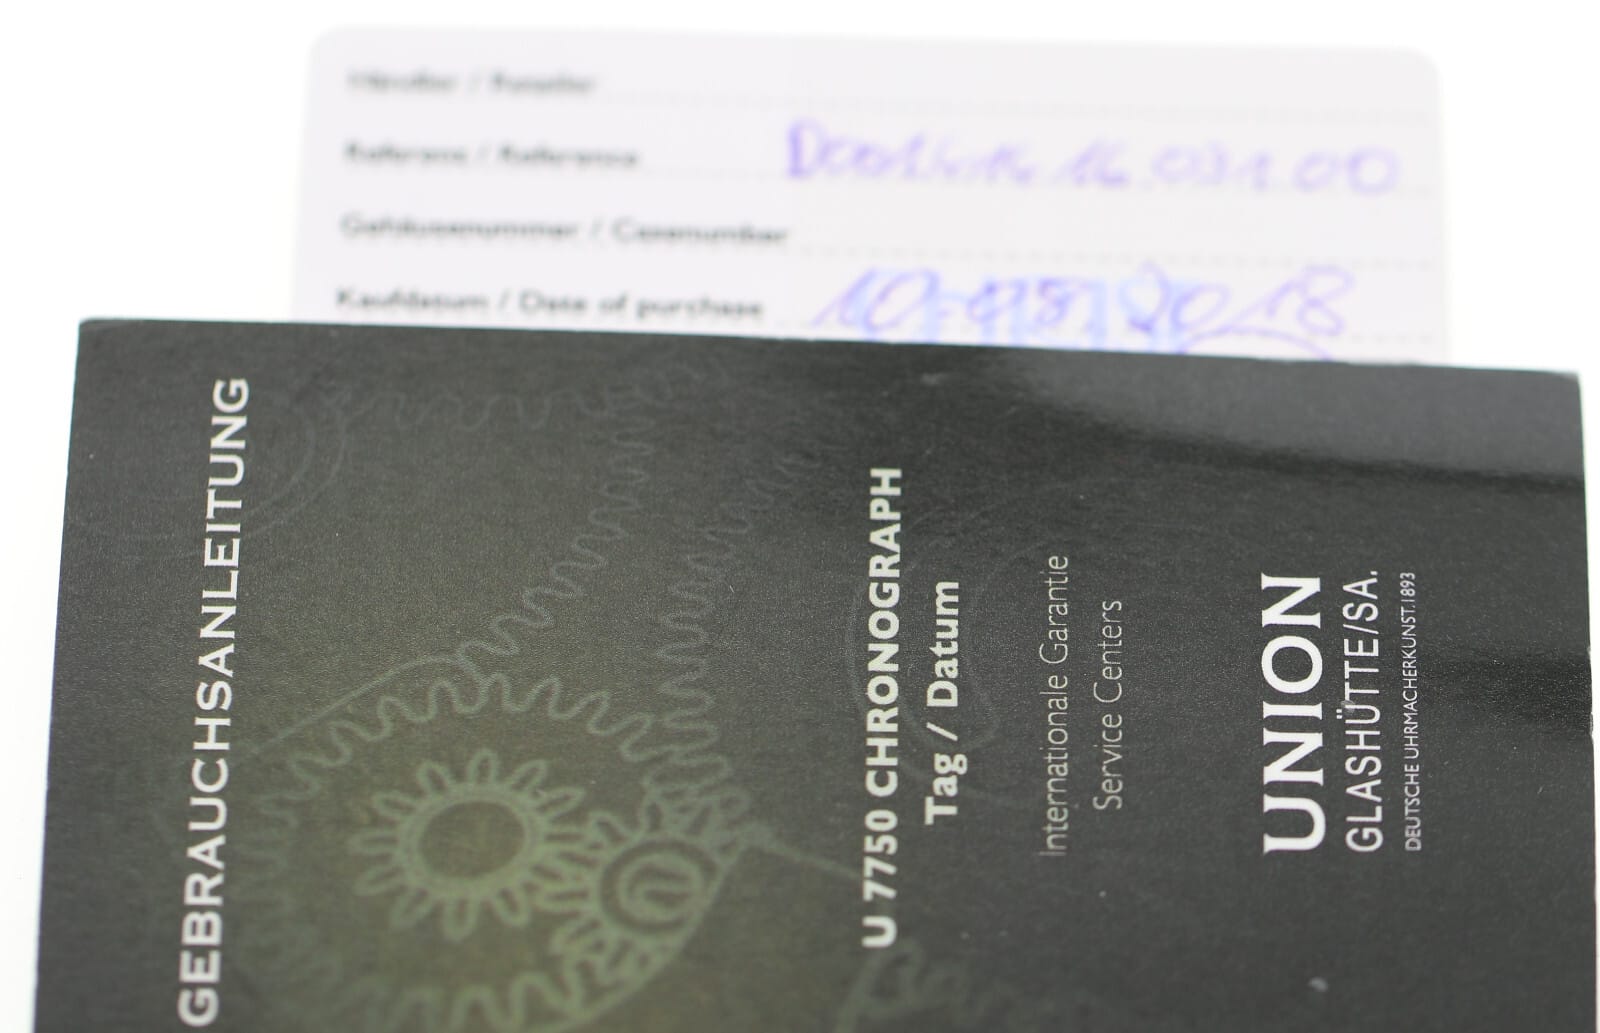 Händler / Retailer
Referenz / Reference
Gehäusenummer / Casenumber
Kaufdatum / Date of purchase 10.08.2018
GEBRAUCHSANLEITUNG
U 7750 CHRONOGRAPH
Tag / Datum
Internationale Garantie
Service Centers
UNION
GLASHÜTTE/SA.
DEUTSCHE UHRMACHERKUNST.1893